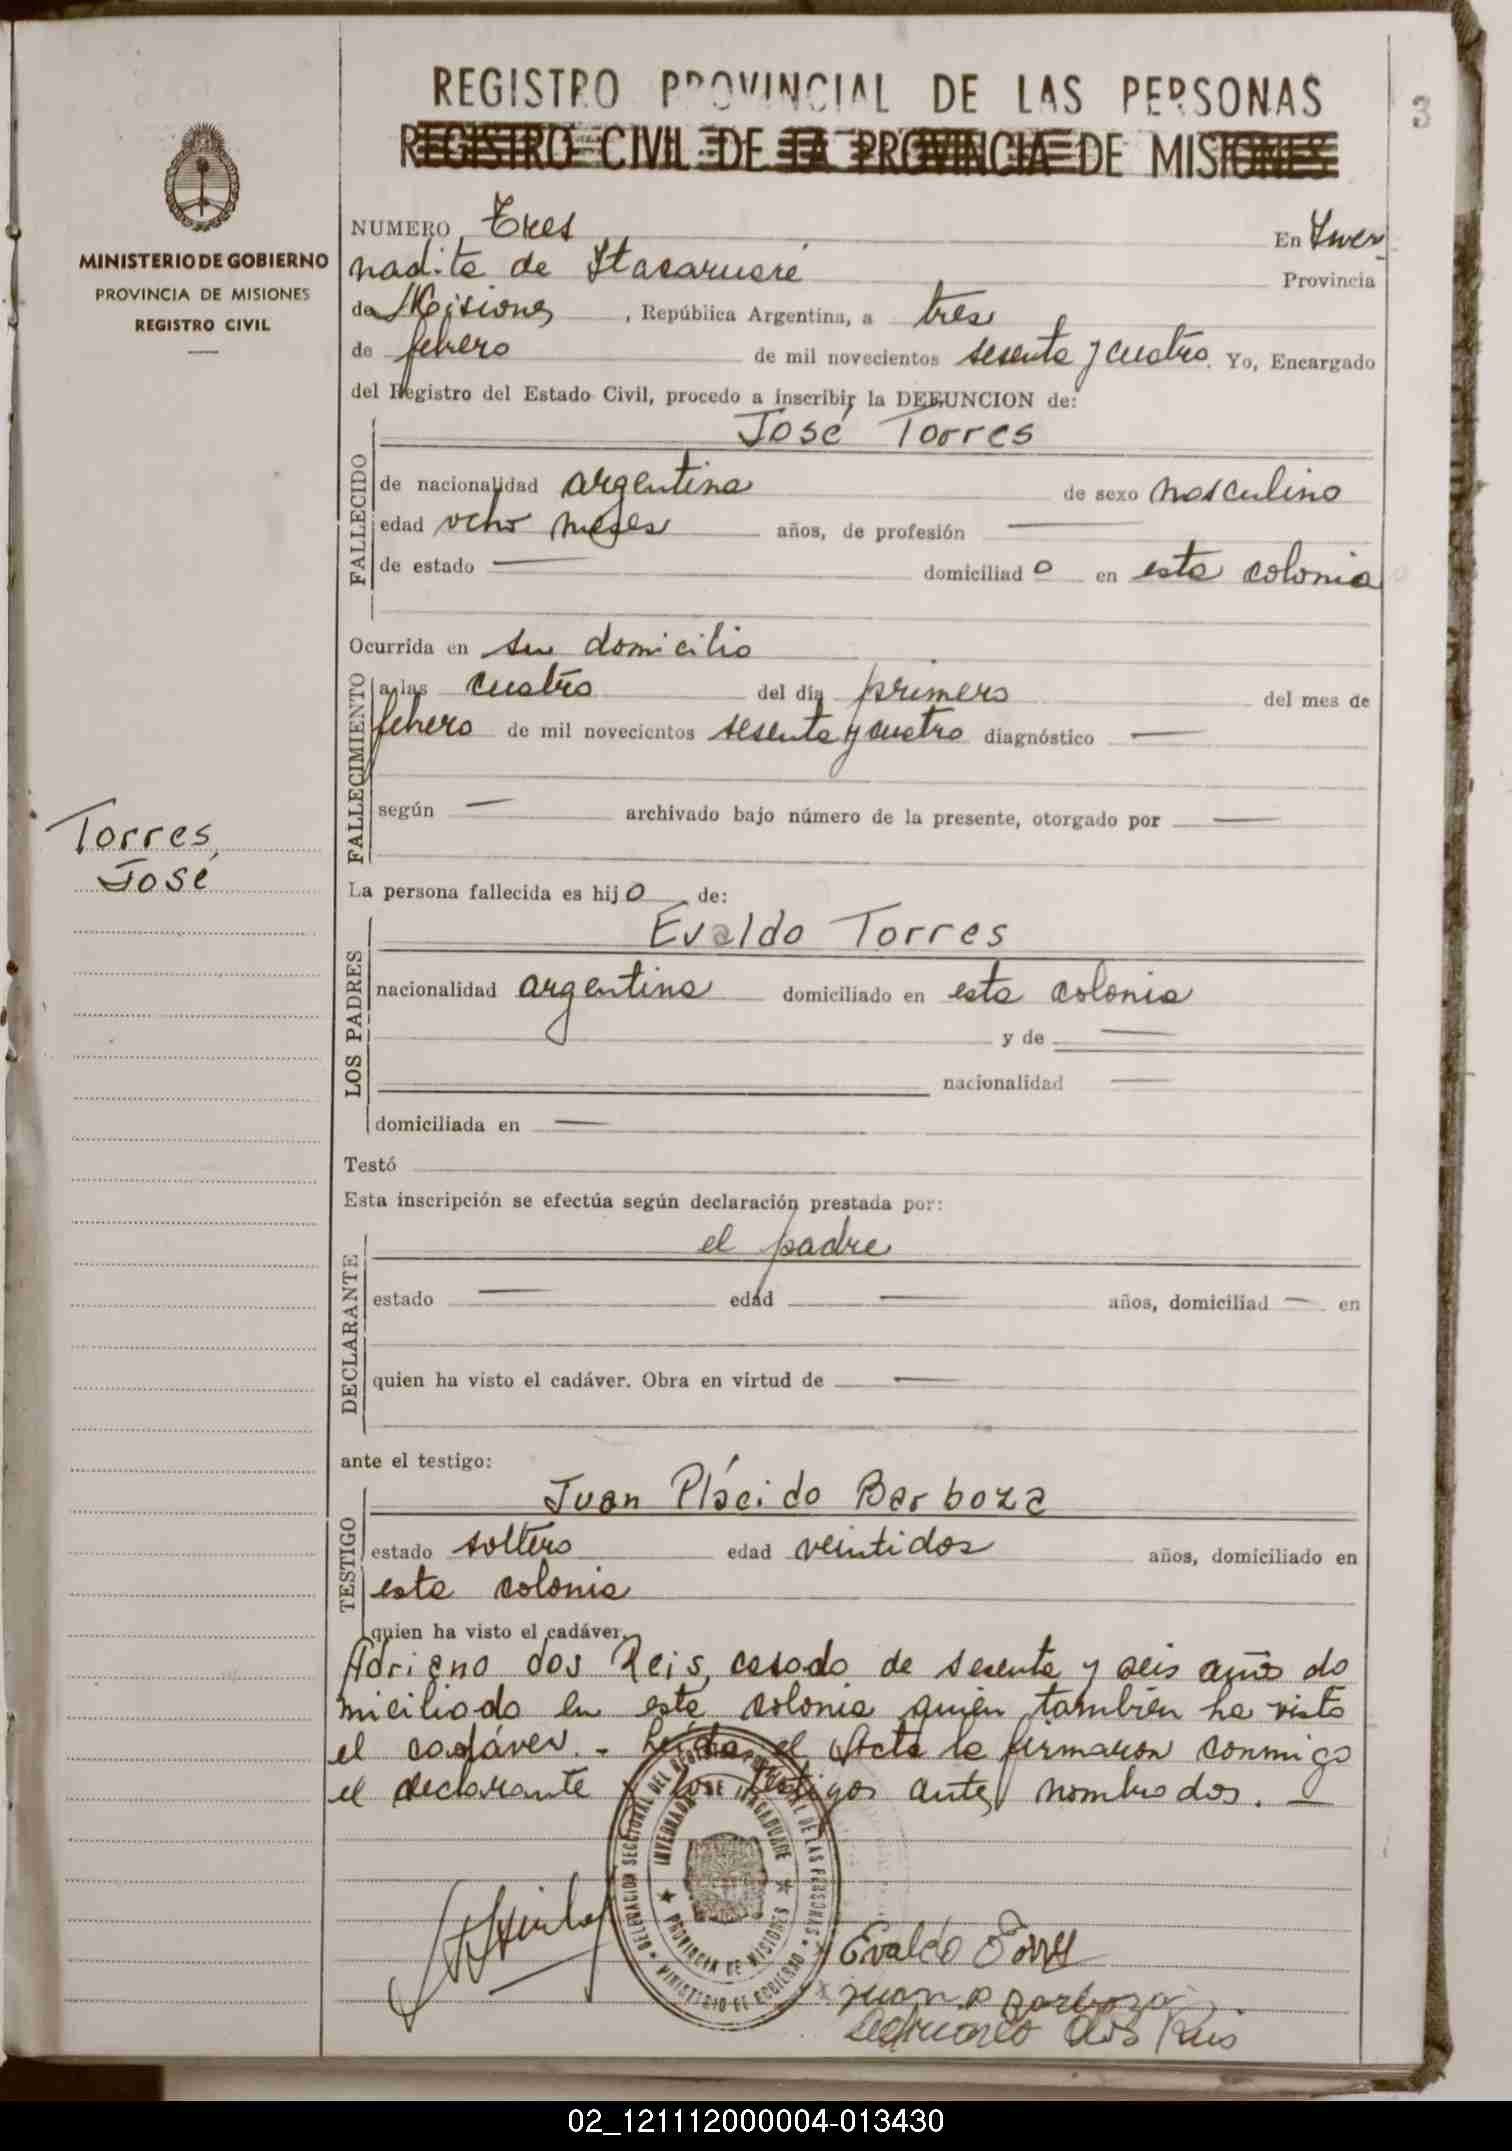 REGISTRO PROVINCIAL DE LAS PERSONAS
REGISTRO CIVIL DE LA PROVINCIA DE MISIONES
3
MINISTERIO DE GOBIERNO
PROVINCIA DE MISIONES
REGISTRO CIVIL
NUMERO Tres En Inver
nadita de Itacaruaré Provincia
de Misiones, República Argentina, a tres
de febrero de mil novecientos sesenta y cuatro. Yo, Encargado
del Registro del Estado Civil, procedo a inscribir la DEFUNCION de:
José Torres
FALLECIDO
de nacionalidad argentina de sexo masculino
edad ocho meses años, de profesión —
de estado — domiciliado en esta colonia
Ocurrida en su domicilio
FALLECIMIENTO
a las cuatro del día primero del mes de
febrero de mil novecientos sesenta y cuatro diagnóstico —
según — archivado bajo número de la presente, otorgado por —
Torres,
José
La persona fallecida es hijo de:
Evaldo Torres
LOS PADRES
nacionalidad argentina domiciliado en esta colonia
y de —
nacionalidad —
domiciliada en —
Testó
Esta inscripción se efectúa según declaración prestada por:
el padre
DECLARANTE
estado — edad — años, domiciliad — en
quien ha visto el cadáver. Obra en virtud de —
ante el testigo:
Juan Plácido Barboza
TESTIGO
estado soltero edad veintidos años, domiciliado en
esta colonia
quien ha visto el cadáver.
Adriano dos Reis, casado de sesenta y seis años do
miciliado en esta colonia quien también ha visto
el cadáver. - Leída el Acta la firmaron conmigo
el declarante y los testigos antes nombrados. —
DELEGACION SECCIONAL DEL REGISTRO PROVINCIAL DE LAS PERSONAS
INVERNADA DE ITACARUARE
PROVINCIA DE MISIONES
MINISTERIO DE GOBIERNO
Evaldo Torres
Juan P Barboza
Adriano dos Reis
02_121112000004-013430